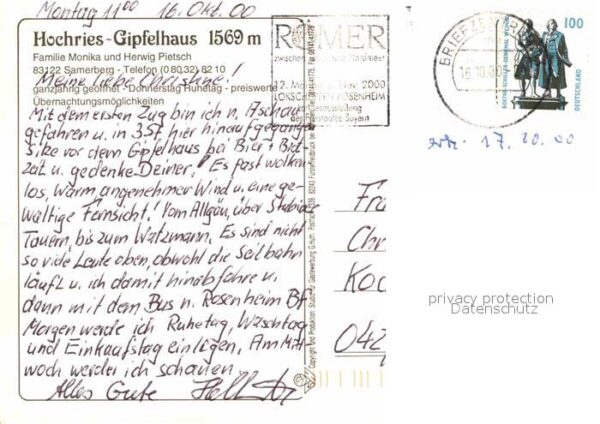 Montag 11⁰⁰ 16. Okt. 00
Hochries-Gipfelhaus 1569 m
Familie Monika und Herwig Pietsch
83122 Samerberg - Telefon (0 80 32) 82 10
ganzjährig geöffnet - Donnerstag Ruhetag - preiswerte
Übernachtungsmöglichkeiten
Meine liebe Christiane!
Mit dem ersten Zug bin ich n. Aschau
gefahren u. in 3.5h hier hinaufgegangen
Sitze vor dem Gipfelhaus bei Bier + Brot-
zeit u. gedenke Deiner! Es fast wolken
los, warm, angenehmer Wind u. eine ge-
waltige Fernsicht! Vom Allgäu, über Stubaier
Tauern, bis zum Watzmann. Es sind nicht
so viele Leute oben, obwohl die Seilbahn
läuft u. ich damit hinabfahre u.
dann mit dem Bus n. Rosenheim Bf.
Morgen werde ich Ruhetag, Waschtag
und Einkaufstag einlegen. Am Mitt
woch werde ich schauen
Alles Gute
RÖMER
zwischen Alpen und Nordmeer
12. Mai - 5. Nov. 2000
LOKSCHUPPEN ROSENHEIM
Landesausstellung
des Freistaates Bayern
BRIEFZENTRUM
16.10.00
100
DEUTSCHLAND
GOETHE-SCHILLER-DENKMAL WEIMAR
erh. 17.10.00
Fra
Chr
Koc
042
privacy protection
Datenschutz